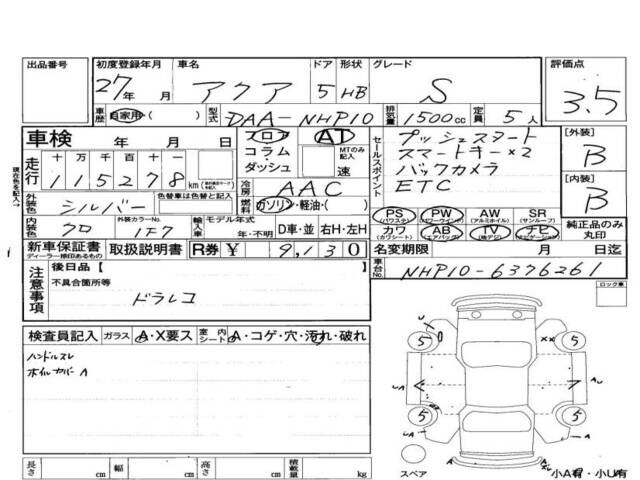 出品番号 初度登録年月 車名 ドア 形状 グレード 評価点
27年 月 アクア 5 HB S 3.5
車歴 自家用( ) 型式 DAA-NHP10 排気量 1500cc 定員 5人
車検 年 月 日
フロア AT
コラム・
ダッシュ
MTのみ記入
速
セールスポイント
プッシュスタート
スマートキー×2
バックカメラ
ETC
[外装]
B
[内装]
B
純正品のみ
丸印
現在色を記入→
走行 十 万 千 百 十 一
115278km
冷房 AAC
外装色 シルバー 色替車は色替と記入
燃料 ガソリン・軽油・( )
内装色 クロ 外装カラーNo. 1F7
輸入車 モデル年式 年・不明 D車・並 右H・左H
PS (パワステ) PW (パワーウインド) AW (アルミホイル) SR (サンルーフ)
カワ (カワシート) AB (エアバッグ) TV (地デジ) ナビ (ナビゲーション)
新車保証書 ディーラー捺印あるもの 取扱説明書 R券 ¥ 9,130
名変期限 月 日迄
車台No. NHP10-6376261
注意事項
後日品【
不具合箇所等
ドラレコ
ロック車
検査員記入 ガラス A・X要ス 室内シート A・コゲ・穴・汚れ・破れ
ハンドルスレ
ホイルカバーA
U 5 5 XX
UA A AU
5 5
UA A U A
スペア A A XU
小A有・小U有
長さ cm 幅 cm 高さ cm 積載量 kg